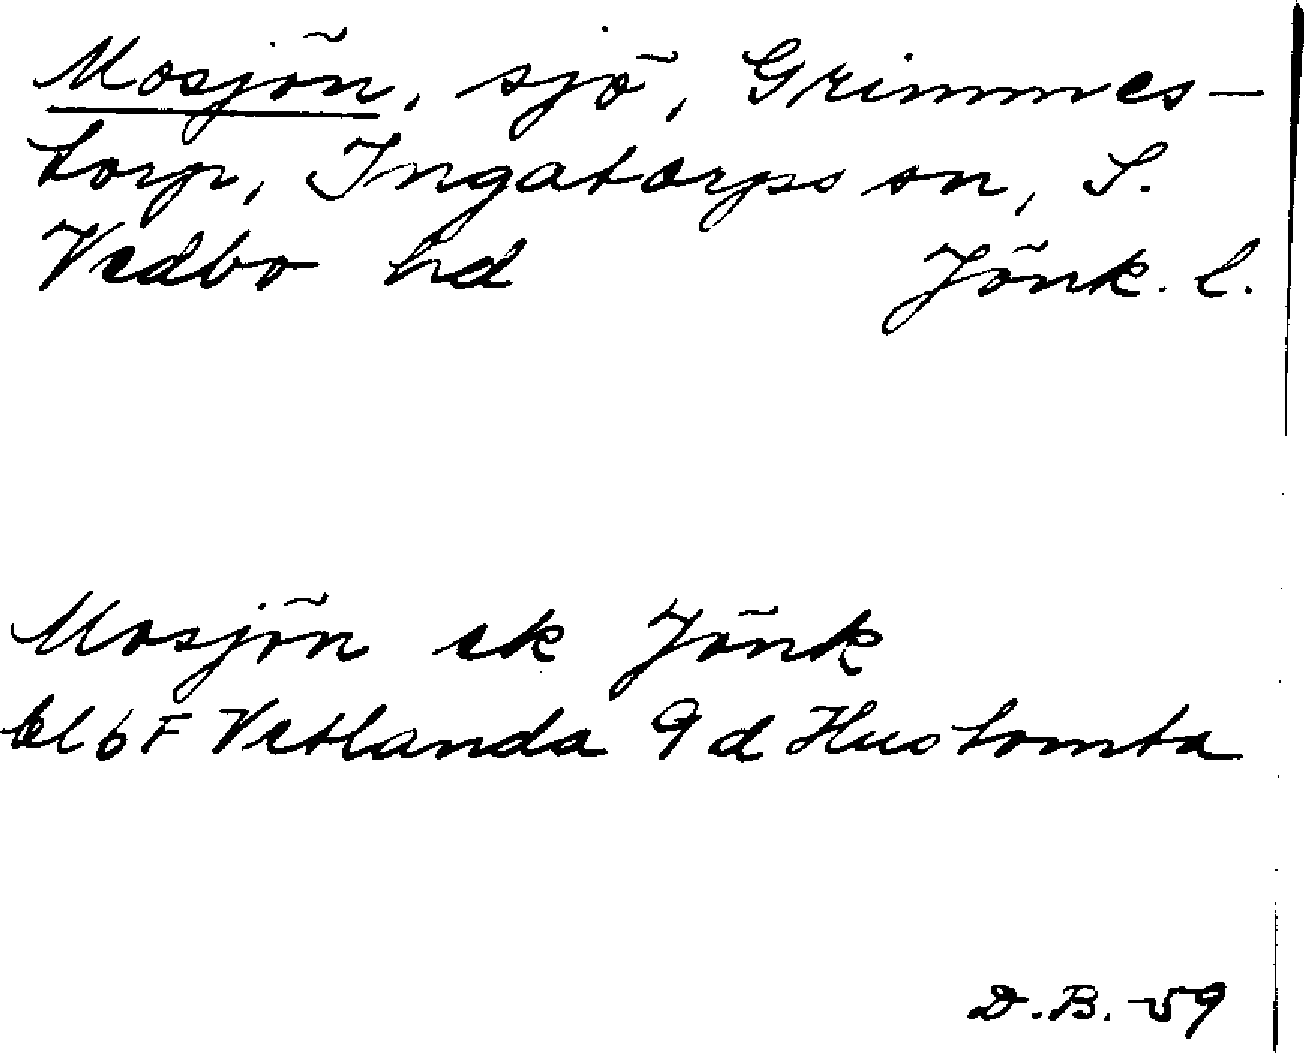 Mosjön, sjö, Grimmes-
torp, Ingatorps sn, S.
Vedbo hd Jönk. l.
Mosjön ek Jönk
bl 6F Vetlanda 9 d Hustomta
D.B. -59